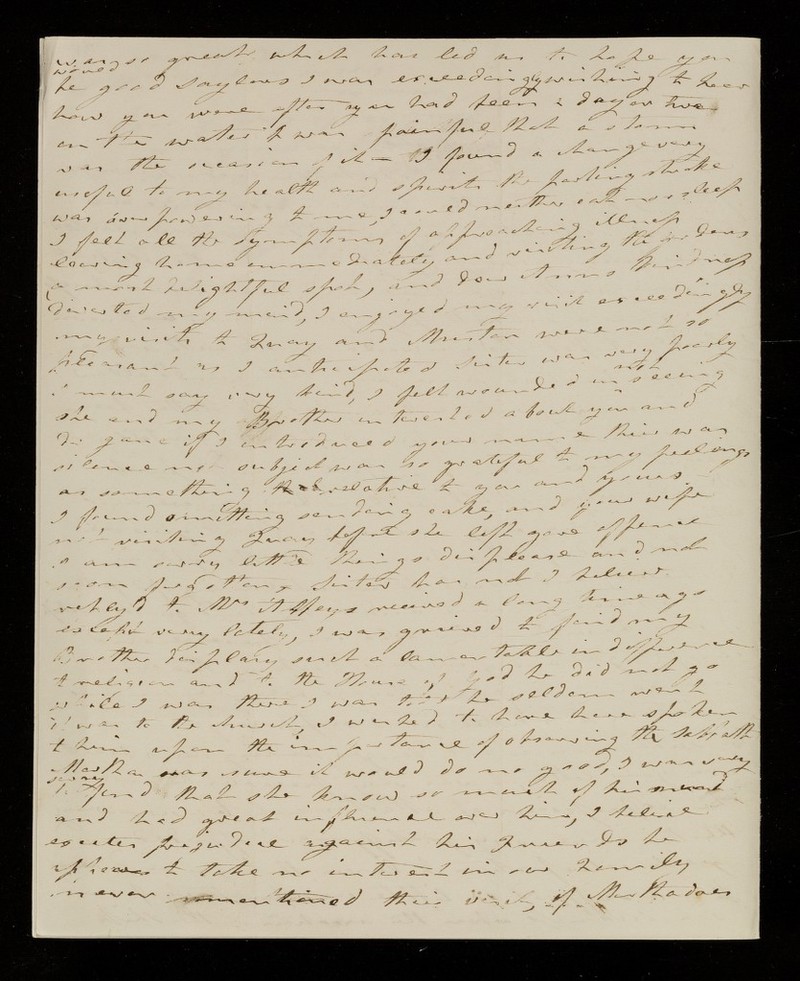 was so great which has led us to hope you
would
be good saylors I was exceedingly wishing to hear
how you were after you had been a day or two
on the water it was painful that a storm
was the occasion of it — I found a change very
useful to my health and spirits the parting stroke
was over powering to me, I could neither eat nor sleep
I felt all the symptoms of approaching illness
leaving home immediately and visiting the
a most delightful spot, and dear Anns kindness
diverted my mind, I enjoyed my visit exceedingly
my visits to Quay and Marston were not so
pleasant as I anticipated Sister was very poorly
I must say very kind, I felt wounded in not seeing
she and my Brother interested about you and
if I introduced your name their was
silence no subject was so grateful to my feelings
as something relative to you and yours
I found omitting sending cake, and your wife
not visiting Quay before she left gave offence
I am sorry little things displease and not
soon forgotten, Sister has not I believe
reply'd to Mrs received a long time ago
except very lately, I was grieved to find my
Brother display such a lamentable indifference
to religion and to the House of God he did not go
while I was there I was told he seldom went
it was to the church, I wished to have have spoken
to him upon the importance of observing the sabbath
Martha was sure it would do no good, I was very
sorry
to find that she knew so much of his mind
and had great influence over him, I believe
excites prejudice against his Friends he
appears to take no interest in our Family
never mentioned their visit, if Martha does